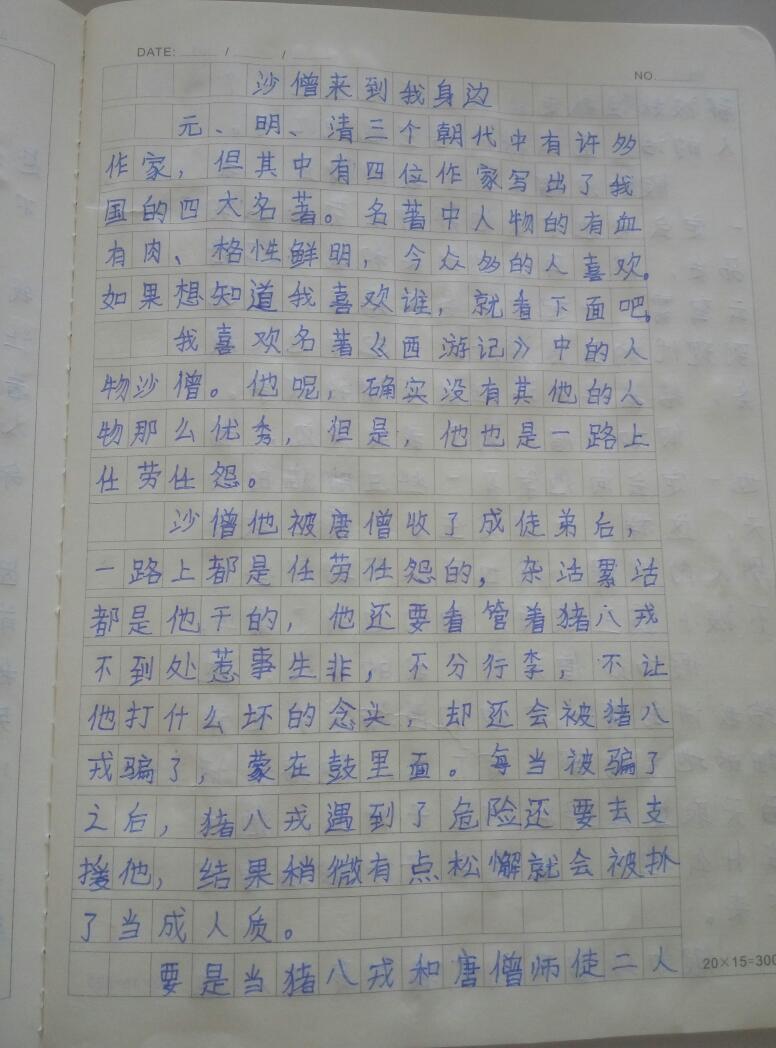 DATE: / /
NO.
沙僧来到我身边
元、明、清三个朝代中有许多
作家，但其中有四位作家写出了我
国的四大名著。名著中人物的有血
有肉、格性鲜明，今众多的人喜欢。
如果想知道我喜欢谁，就看下面吧。
我喜欢名著《西游记》中的人
物沙僧。他呢，确实没有其他的人
物那么优秀，但是，他也是一路上
任劳任怨。
沙僧他被唐僧收了成徒弟后，
一路上都是任劳任怨的，杂活累活
都是他干的，他还要看管着猪八戎
不到处惹事生非，不分行李，不让
他打什么坏的念头，却还会被猪八
戎骗了，蒙在鼓里面。每当被骗了
之后，猪八戎遇到了危险还要去支
援他，结果稍微有点松懈就会被抓
了当成人质。
要是当猪八戎和唐僧师徒二人
20×15=300